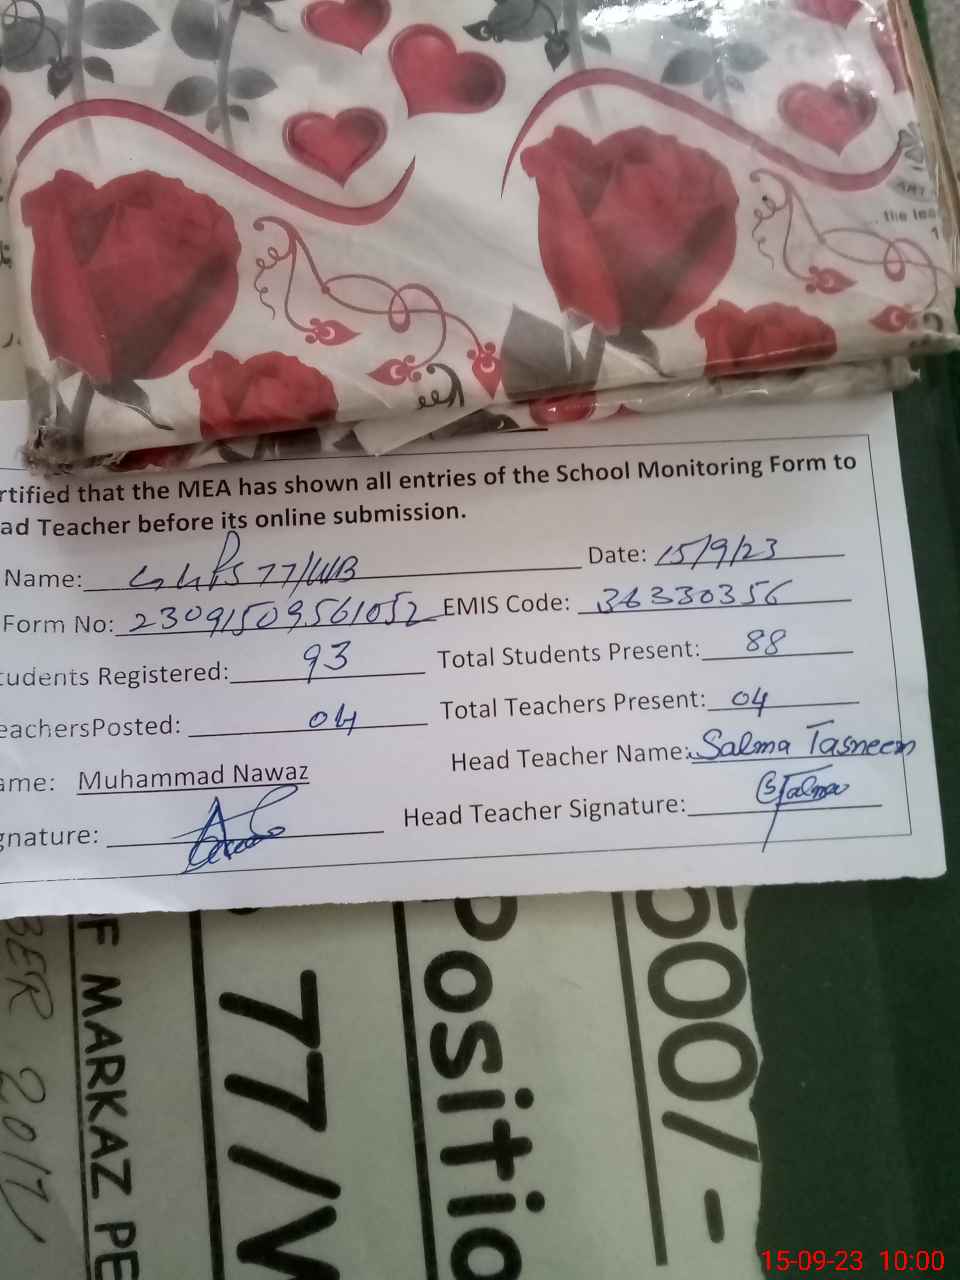 the lea
rtified that the MEA has shown all entries of the School Monitoring Form to
ad Teacher before its online submission.
Name: GGPS 77/WB Date: 15/9/23
Form No: 23091509561052 EMIS Code: 36330356
tudents Registered: 93 Total Students Present: 88
eachersPosted: 04 Total Teachers Present: 04
ame: Muhammad Nawaz Head Teacher Name: Salma Tasneem
gnature: Head Teacher Signature: Salma
500/-
Positio
77/W
OF MARKAZ PE
BER 2017
15-09-23 10:00